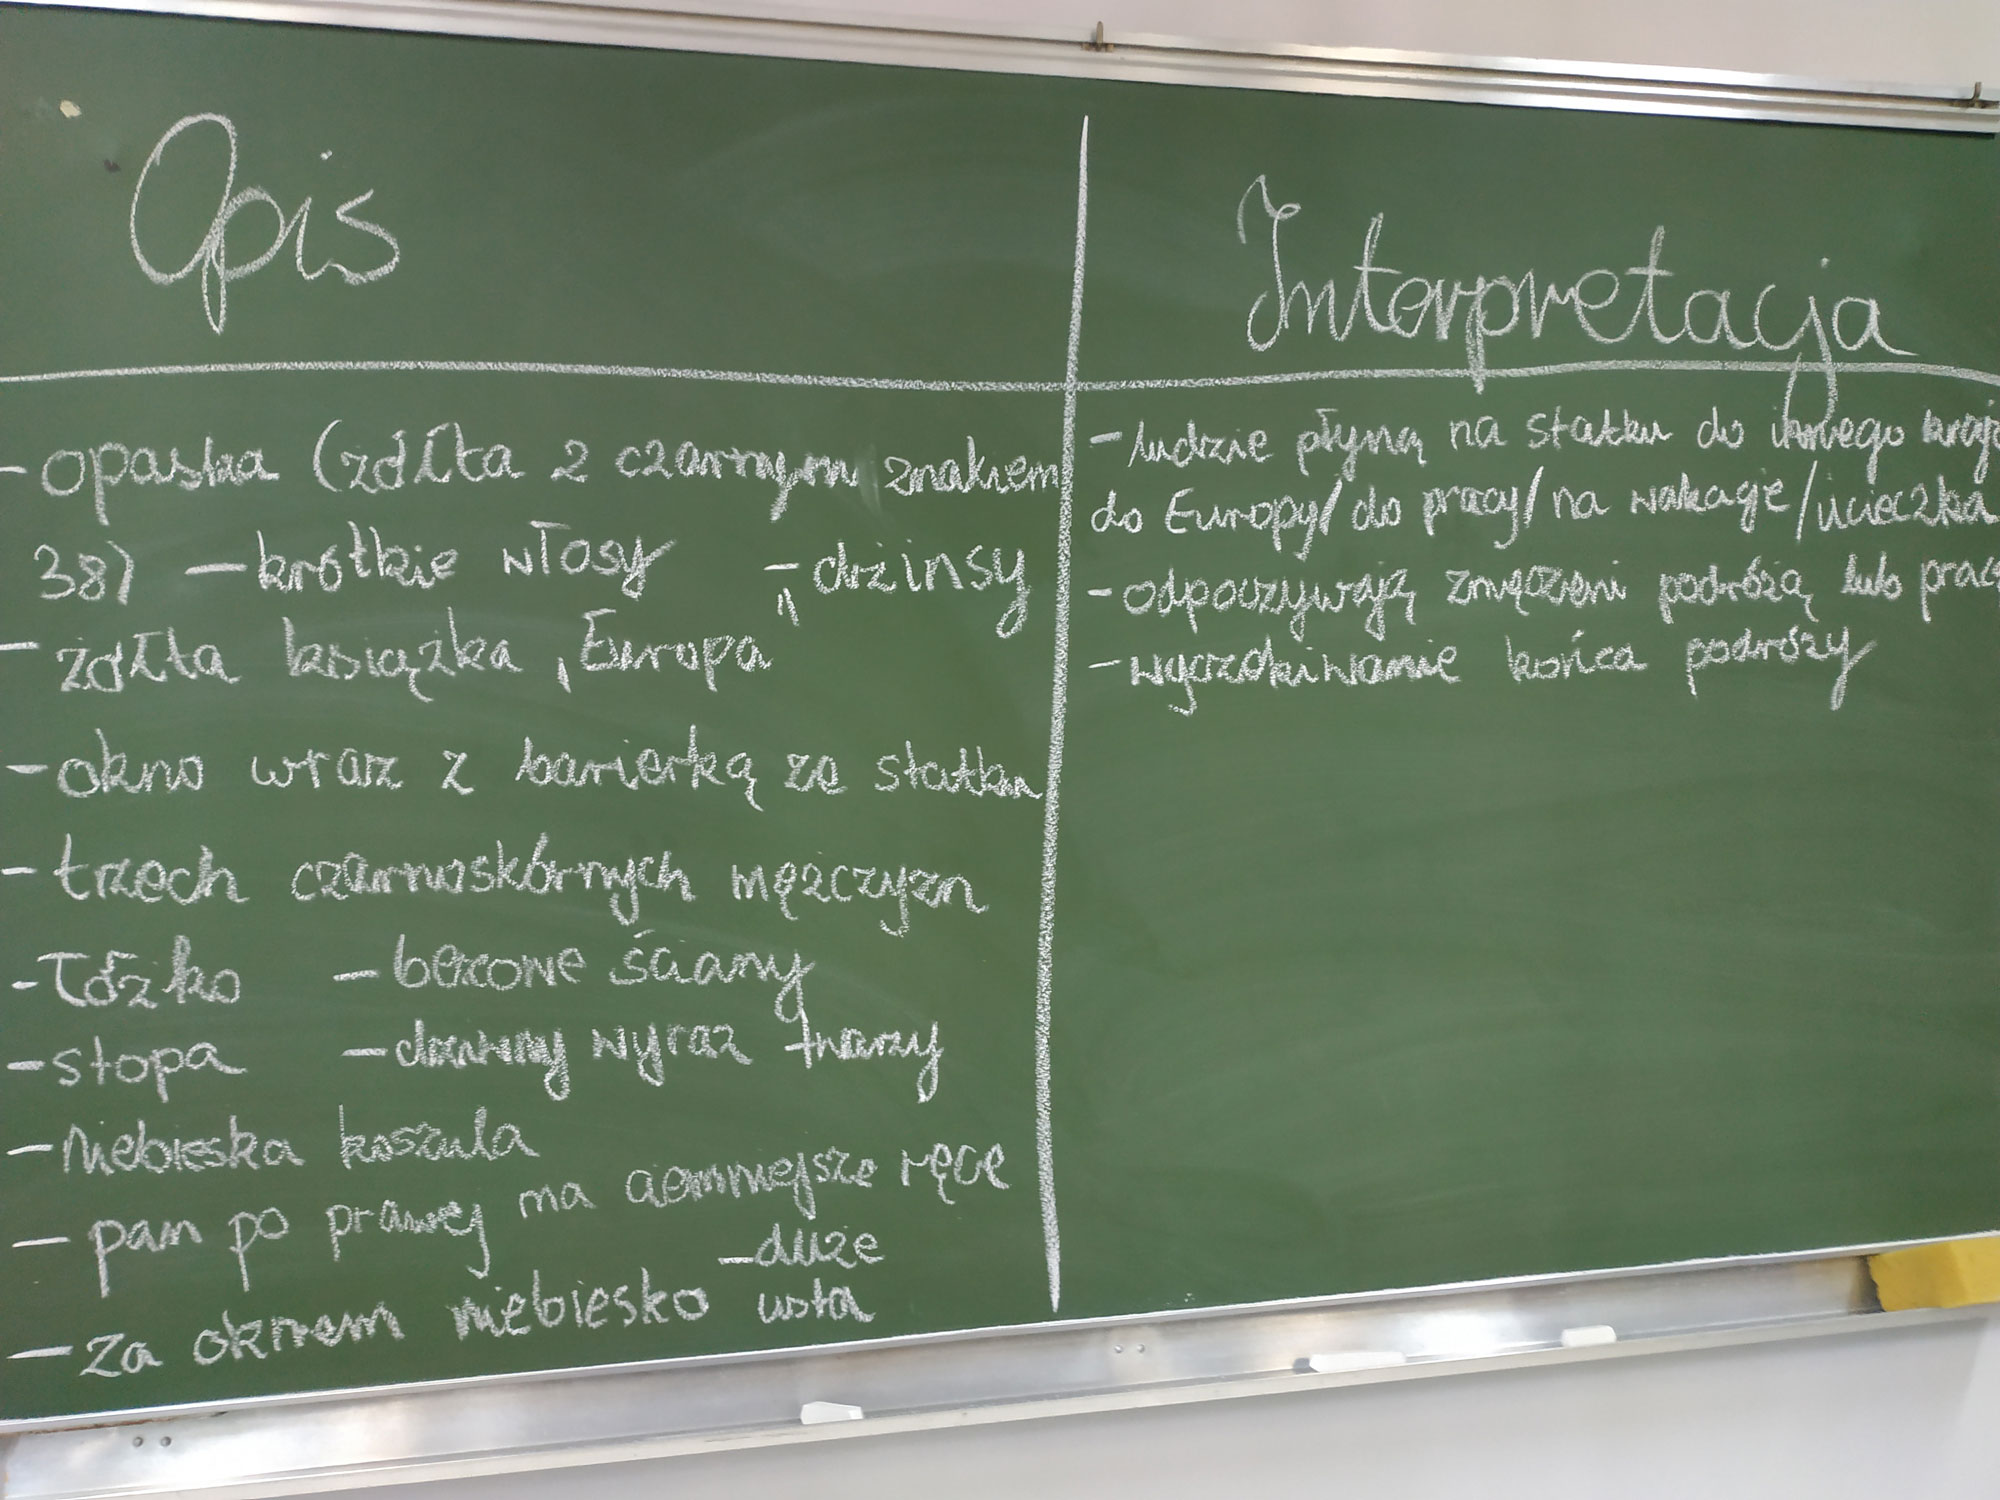 Opis
- opaska (żółta z czarnym znakiem
38) - krótkie włosy - dżinsy
- żółta książka „Europa”
- okno wraz z barierką ze statku
- trzech czarnoskórnych mężczyzn
- łóżko - beżowe ściany
- stopa - dziwny wyraz twarzy
- niebieska koszula
- pan po prawej ma ciemniejsze ręce
- duże
- za oknem niebiesko usta
Interpretacja
- ludzie płyną na statku do innego kraju
do Europy/ do pracy/ na wakacje/ucieczka
- odpoczywają zmęczeni podróżą lub pracą
- wyczekiwanie końca podróży